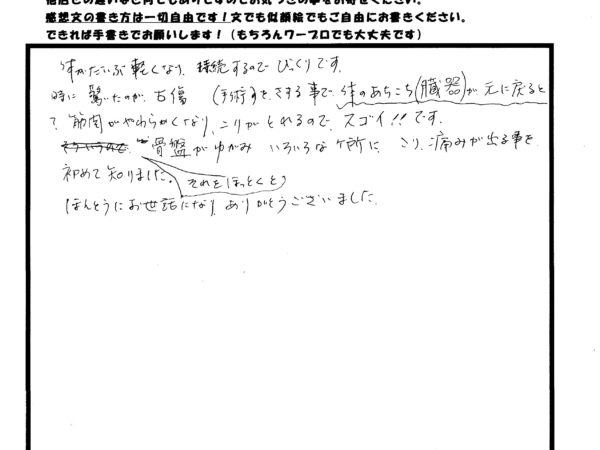 感想文の書き方は一切自由です！文でも似顔絵でもご自由にお書きください。
できれば手書きでお願いします！（もちろんワープロでも大丈夫です）
体がだいぶ軽くなり、持続するので びっくりです。
時に 驚いたのが、古傷 （手術）を、さする事で、体のあちこち(臓器)が、元に戻ると
筋肉がやわらかくなり、コリがとれるので、スゴイ!!です。
そういうので 骨盤がゆがみ いろいろなヶ所に こり、痛みが出る事を
初めて知りました。 それをほっとくと
ほんとうにお世話になり、ありがとうございました。